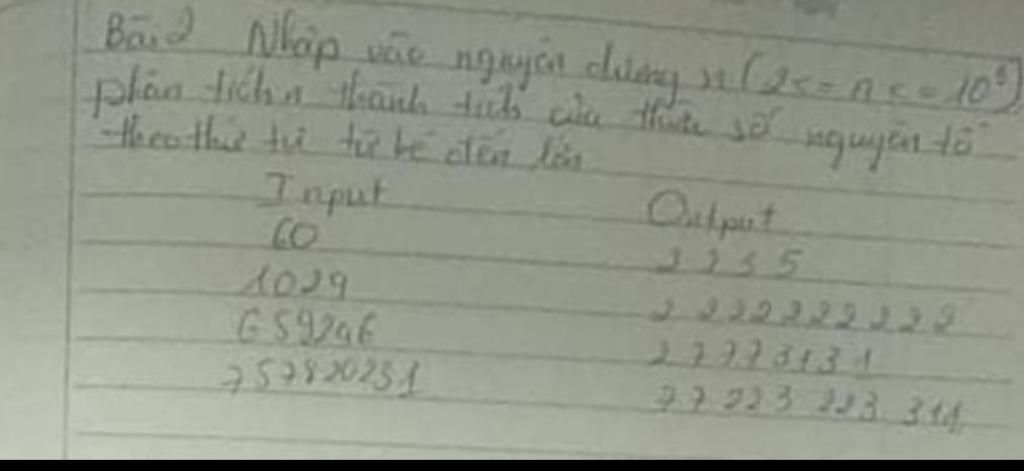 Bài 2 Nhập vào nguyên dương n (2<=n<=10⁹)
phân tích n thành tích của thừa số nguyên tố
theo thứ tự từ bé đến lớn
Input Output
60 2 2 3 5
1024 2 2 2 2 2 2 2 2 2 2
659246 2 7 7 7 31 31
757820231 7 7 223 223 311